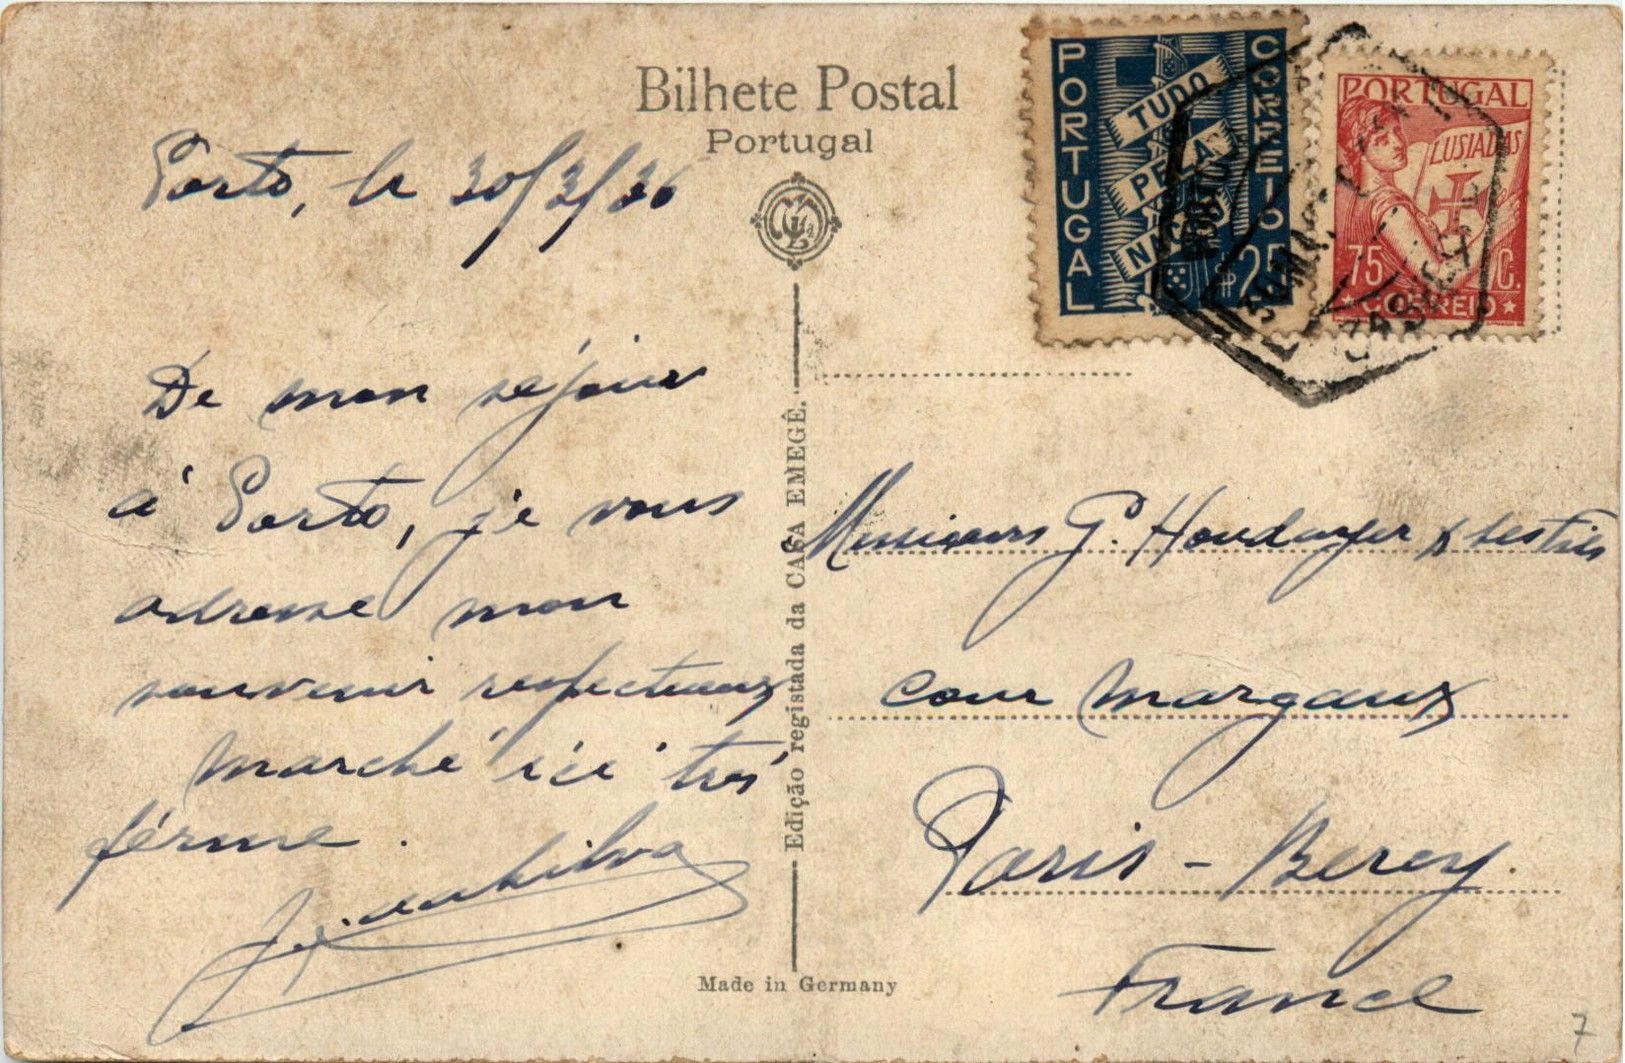 Bilhete Postal
Portugal
Porto, le 30/3/36
De mon séjour
á Porto, je vous
adresse mon
souvenir respectueux
marché ici trés
férme.
Silva
Edição registada da CASA EMEGÊ.
Made in Germany
PORTUGAL
CORREIO
TUDO
PELA
NAÇÃO
$25
PORTUGAL
LUSIADAS
75 C.
CORREIO
Messieurs G. Houdayer &
cour Margaux
Paris - Bercy.
France
7